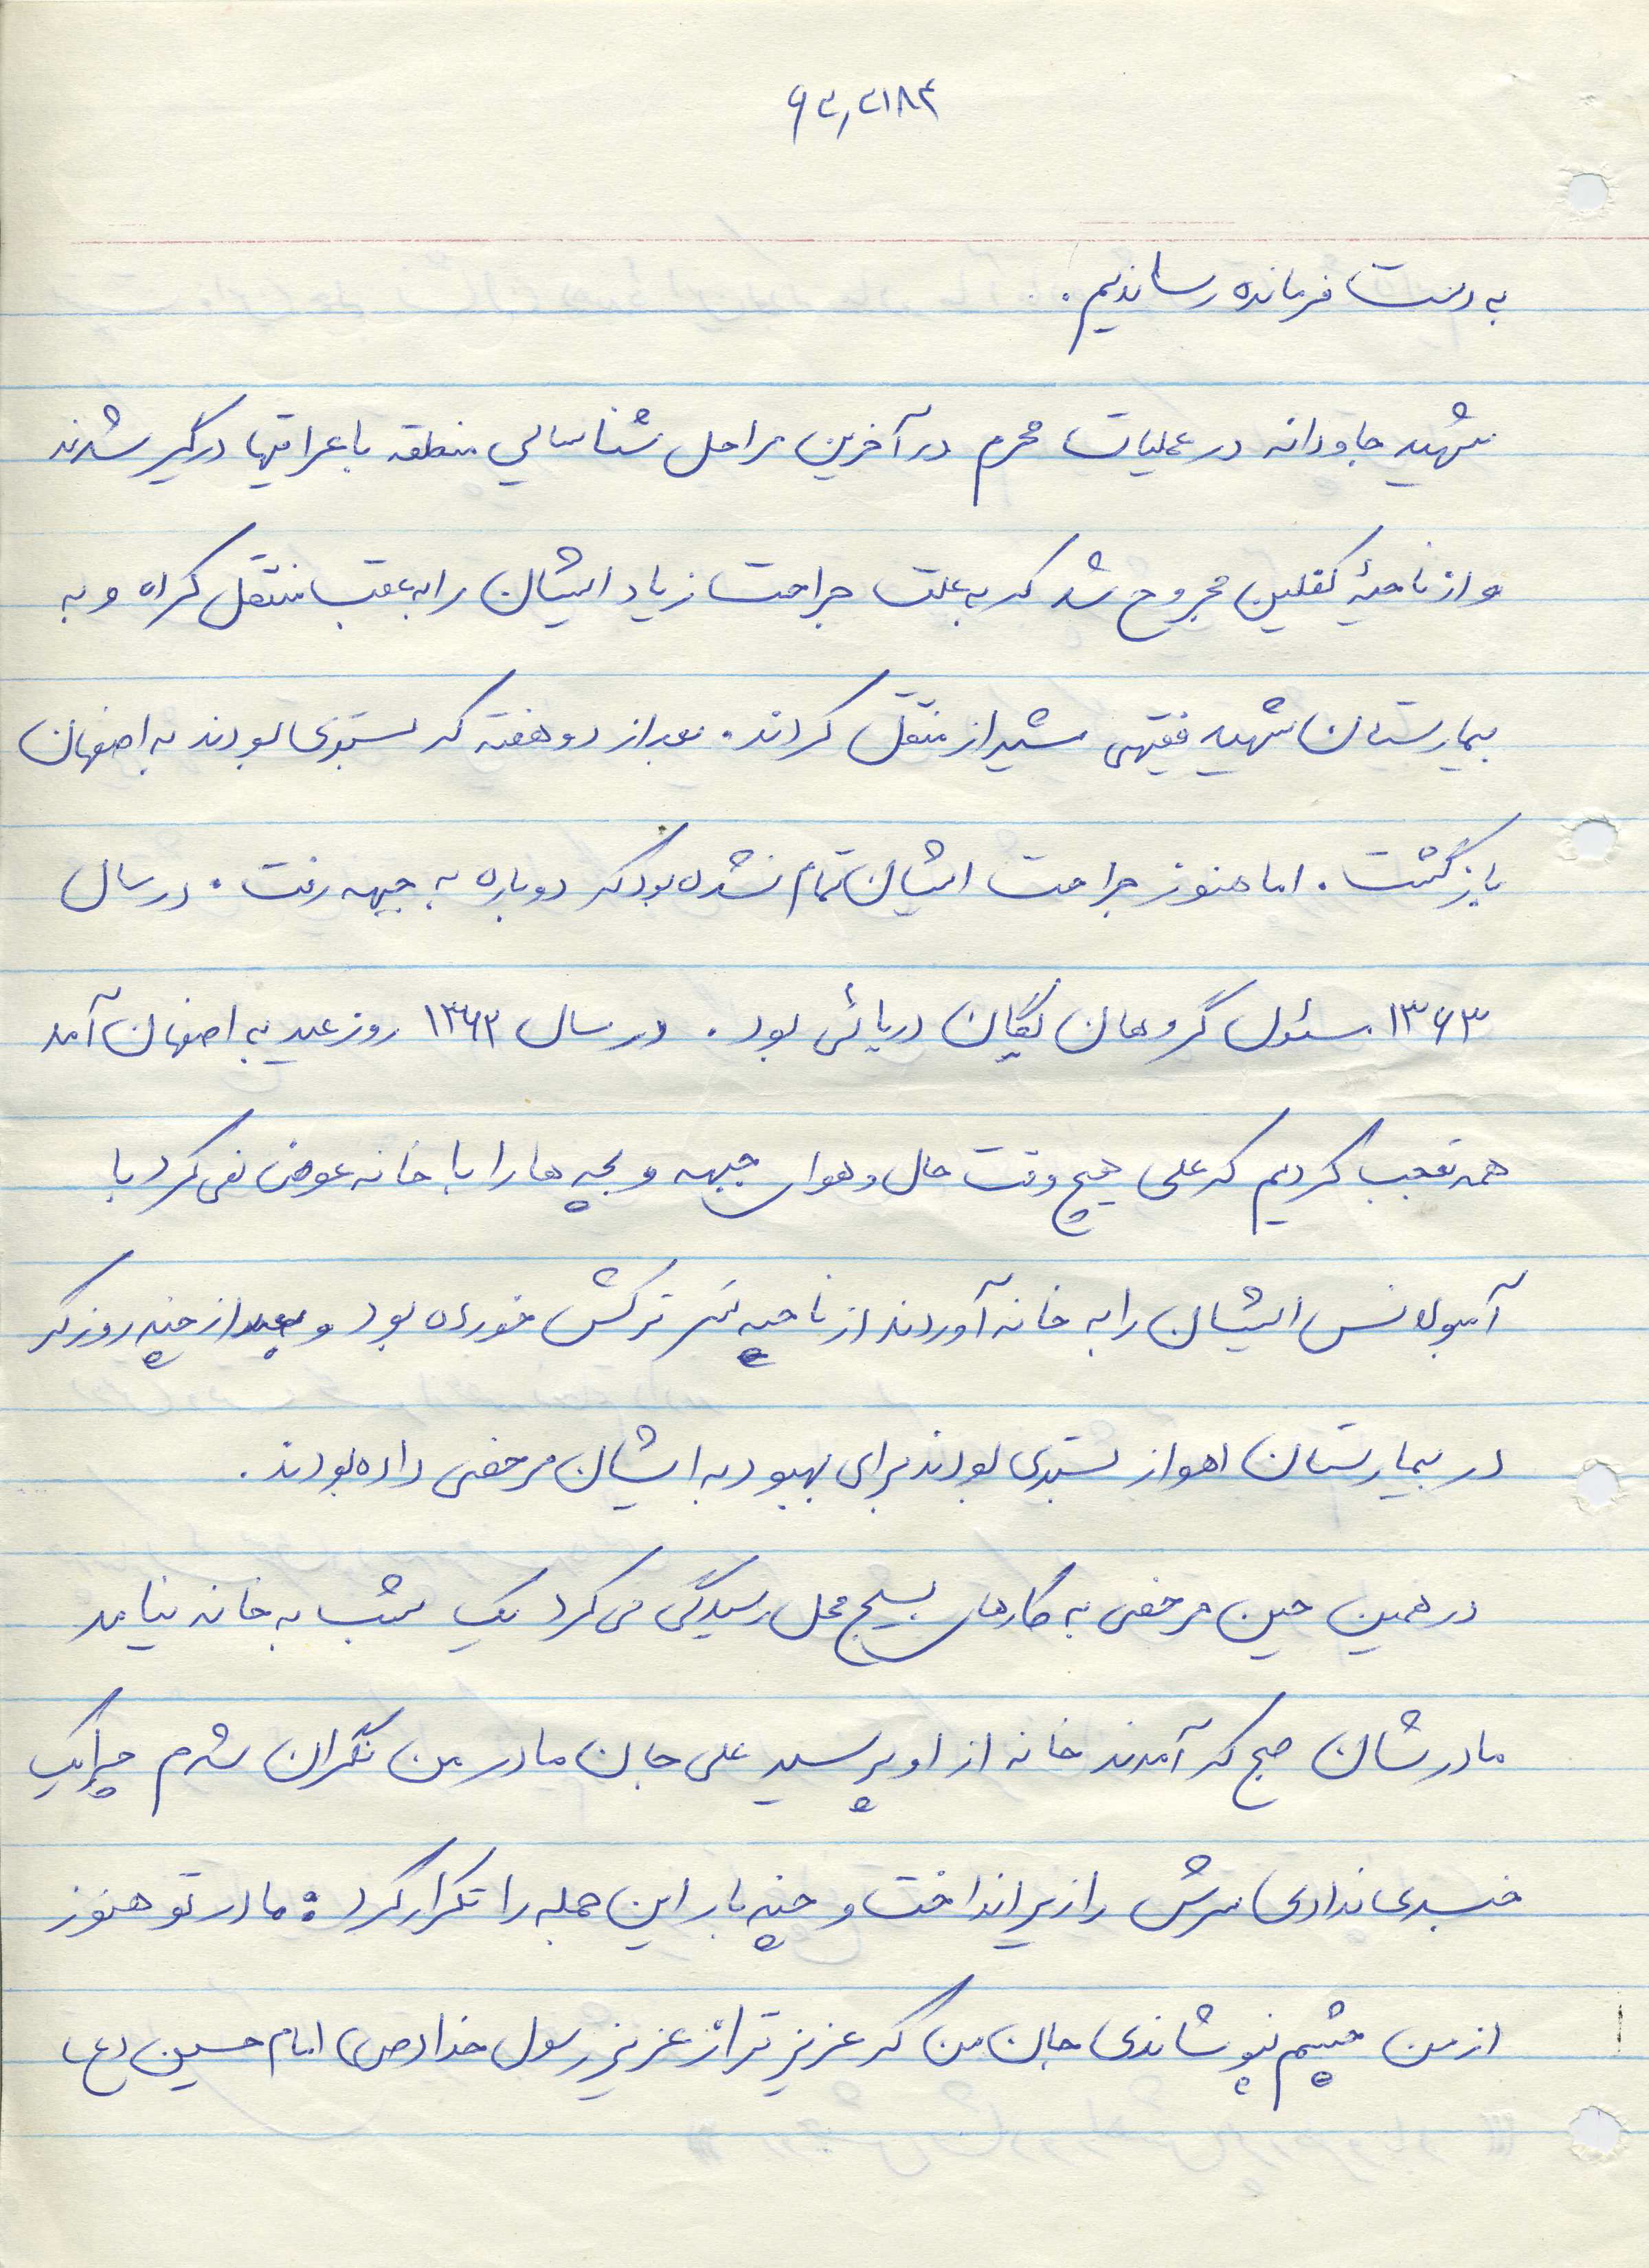 ۶۲٫۲۱۸۴
به دست فرمانده رساندیم.
شهید جاودانه در عملیات محرم در آخرین مراحل شناسایی منطقه با عراقیها درگیر شدند
و از ناحیهٔ کفلین مجروح شد که به علت جراحت زیاد ایشان را به عقب منتقل کرده و به
بیمارستان شهید فقیهی شیراز منتقل کردند. بعد از دو هفته که بستری بودند به اصفهان
بازگشت. اما هنوز جراحت ایشان تمام نشده بود که دوباره به جبهه رفت. در سال
۱۳۶۳ مسئول گروهان یگان دریائی بود. در سال ۱۳۶۳ روز عید به اصفهان آمد
همه تعجب کردیم که علی هیچ وقت حال و هوای جبهه و بچه ها را با خانه عوض نمی کرد با
آمبولانس ایشان را به خانه آوردند از ناحیه سر ترکش خورده بود و بعد از چند روز که
در بیمارستان اهواز بستری بودند برای بهبود به ایشان مرخصی داده بودند.
در همین حین مرخصی به کارهای بسیج محل رسیدگی می کرد یک شب به خانه نیامد
مادرشان صبح که آمدند خانه از او پرسید علی جان مادر من نگران شدم چرا یک
خبری ندادی سرش را زیر انداخت و چند بار این جمله را تکرار کرد: مادر تو هنوز
از من چشم نپوشاندی جان من که عزیز تر از عزیز رسول خدا (ص) امام حسین (ع)